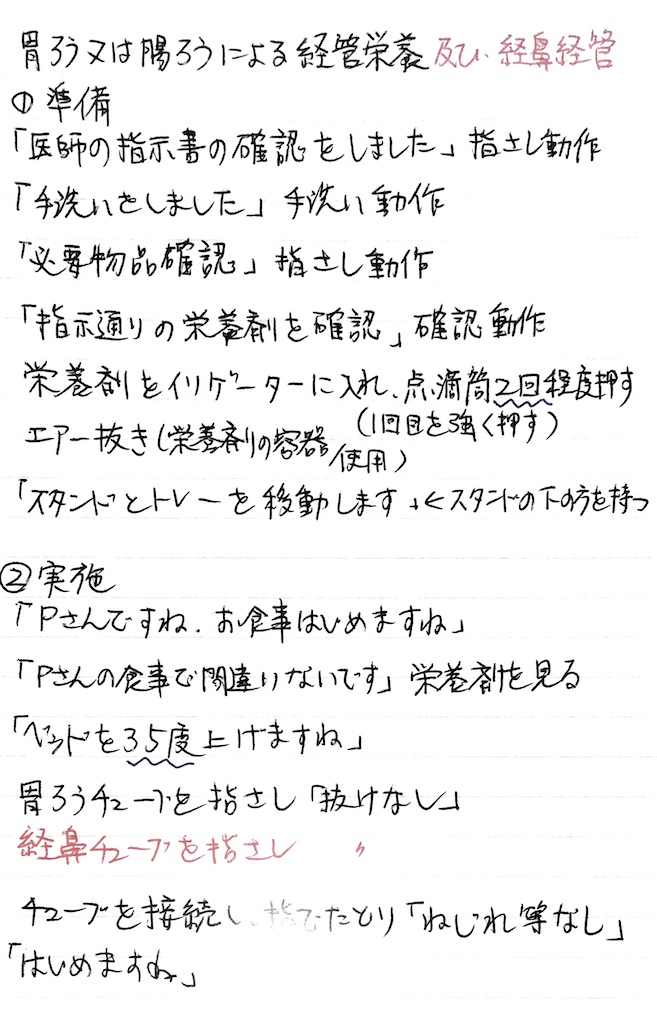 胃ろう又は腸ろうによる経管栄養及び経鼻経管
①準備
「医師の指示書の確認をしました」指さし動作
「手洗いをしました」手洗い動作
「必要物品確認」指さし動作
「指示通りの栄養剤を確認」確認動作
栄養剤をイリゲーターに入れ、点滴筒2回程度押す
(1回目を強く押す)
エアー抜き(栄養剤の容器使用)
「スタンドとトレーを移動します」←スタンドの下の方を持つ
②実施
「Pさんですね.お食事はじめますね」
「Pさんの食事で間違いないです」栄養剤を見る
「ベッドを35度上げますね」
胃ろうチューブを指さし「抜けなし」
経鼻チューブを指さし 〃
チューブを接続し、指でたどり「ねじれ等なし」
「はじめますね」